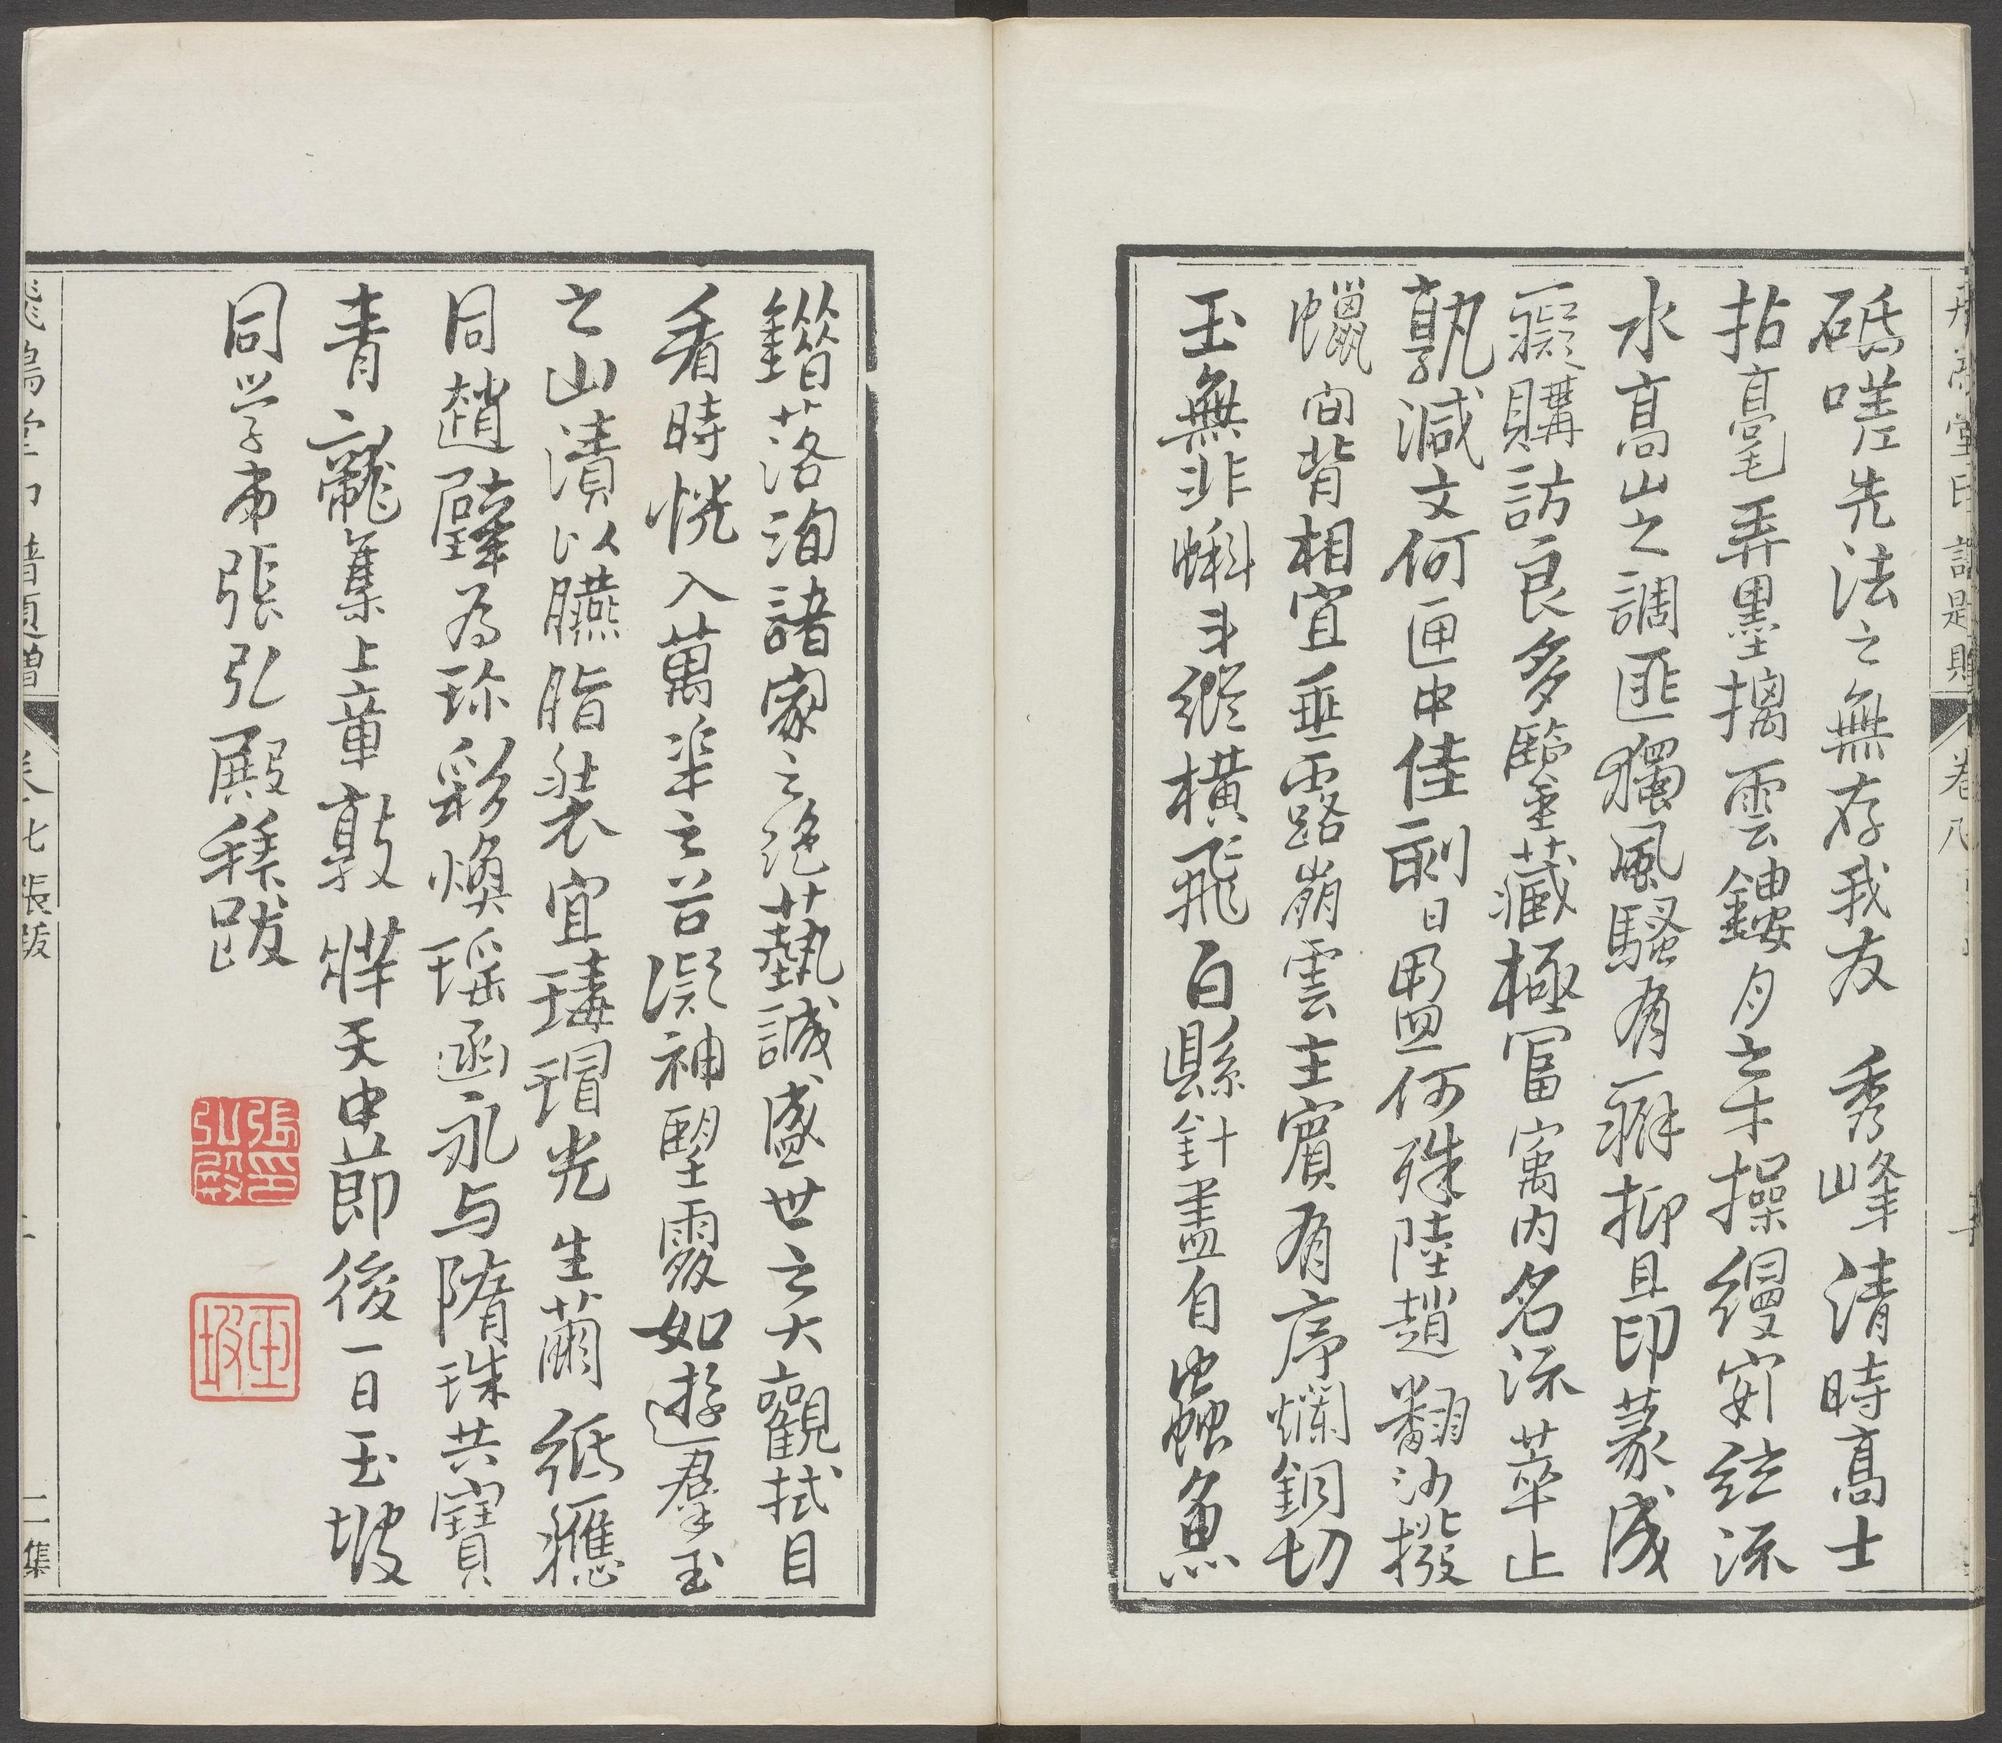 碼嗟先法之無存我友 秀峰清時高士
拈毫弄墨摛雲鏤月之才操縵安絃流
水高山之調匪獨風騷有一癖抑且印篆成
一癡購訪良多鑒藏極富寓內名流萃止
孰減文何匣中佳劂日盟何殊陸趙翻沙撥
蠟向背相宜垂露崩雲主賓有序爛銅切
玉無非蝌斗縱橫飛白縣針盡自蟲魚
錯落洵諸家之絕藝誠盛世之大觀拭目
看時恍入萬峯之谷凝神望處如遊羣玉
之山漬以臙脂裝宜瑇瑁光生繭紙應
同趙璧為珍彩煥瑤函永与隋珠共寶
青龍集上章敦牂天中節後一日玉坡
同学弟張弘殿拜跋
張弘殿印
玉坡
飛鴻堂印譜題贈
張跋
二集